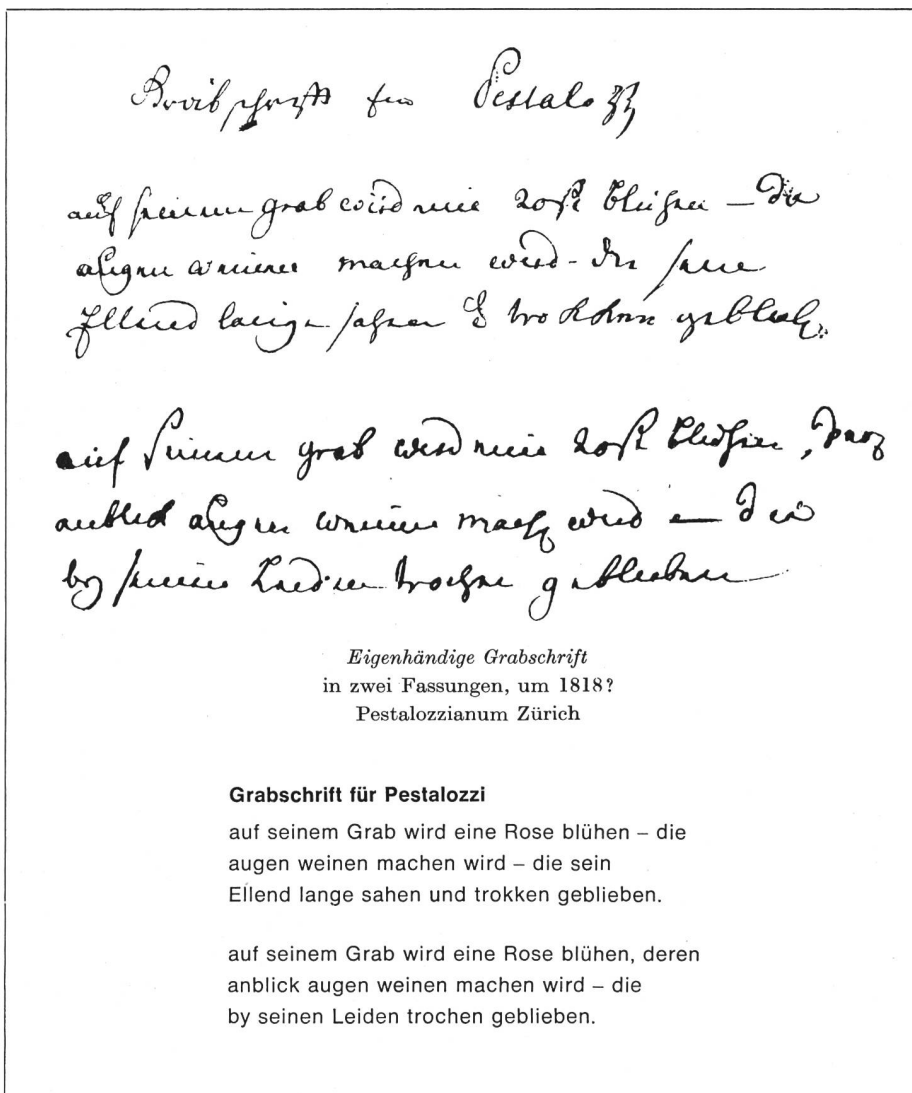 Grabschrift für Pestalozzi
auf seinem grab wird eine rose blühen – die
augen weinen machen wird – die sein
Ellend lange sahen & trokken geblieben.
auf seinem grab wird eine rose blühen, deren
anblick augen weinen machen wird – die
by seinen Leiden trochen geblieben
Eigenhändige Grabschrift
in zwei Fassungen, um 1818?
Pestalozzianum Zürich
Grabschrift für Pestalozzi
auf seinem Grab wird eine Rose blühen – die
augen weinen machen wird – die sein
Ellend lange sahen und trokken geblieben.
auf seinem Grab wird eine Rose blühen, deren
anblick augen weinen machen wird – die
by seinen Leiden trochen geblieben.